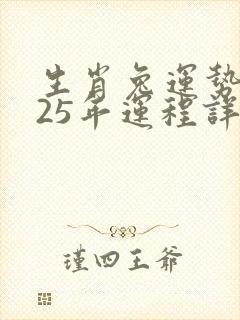 生肖兔運勢
25年運程詳
瑾四王爺